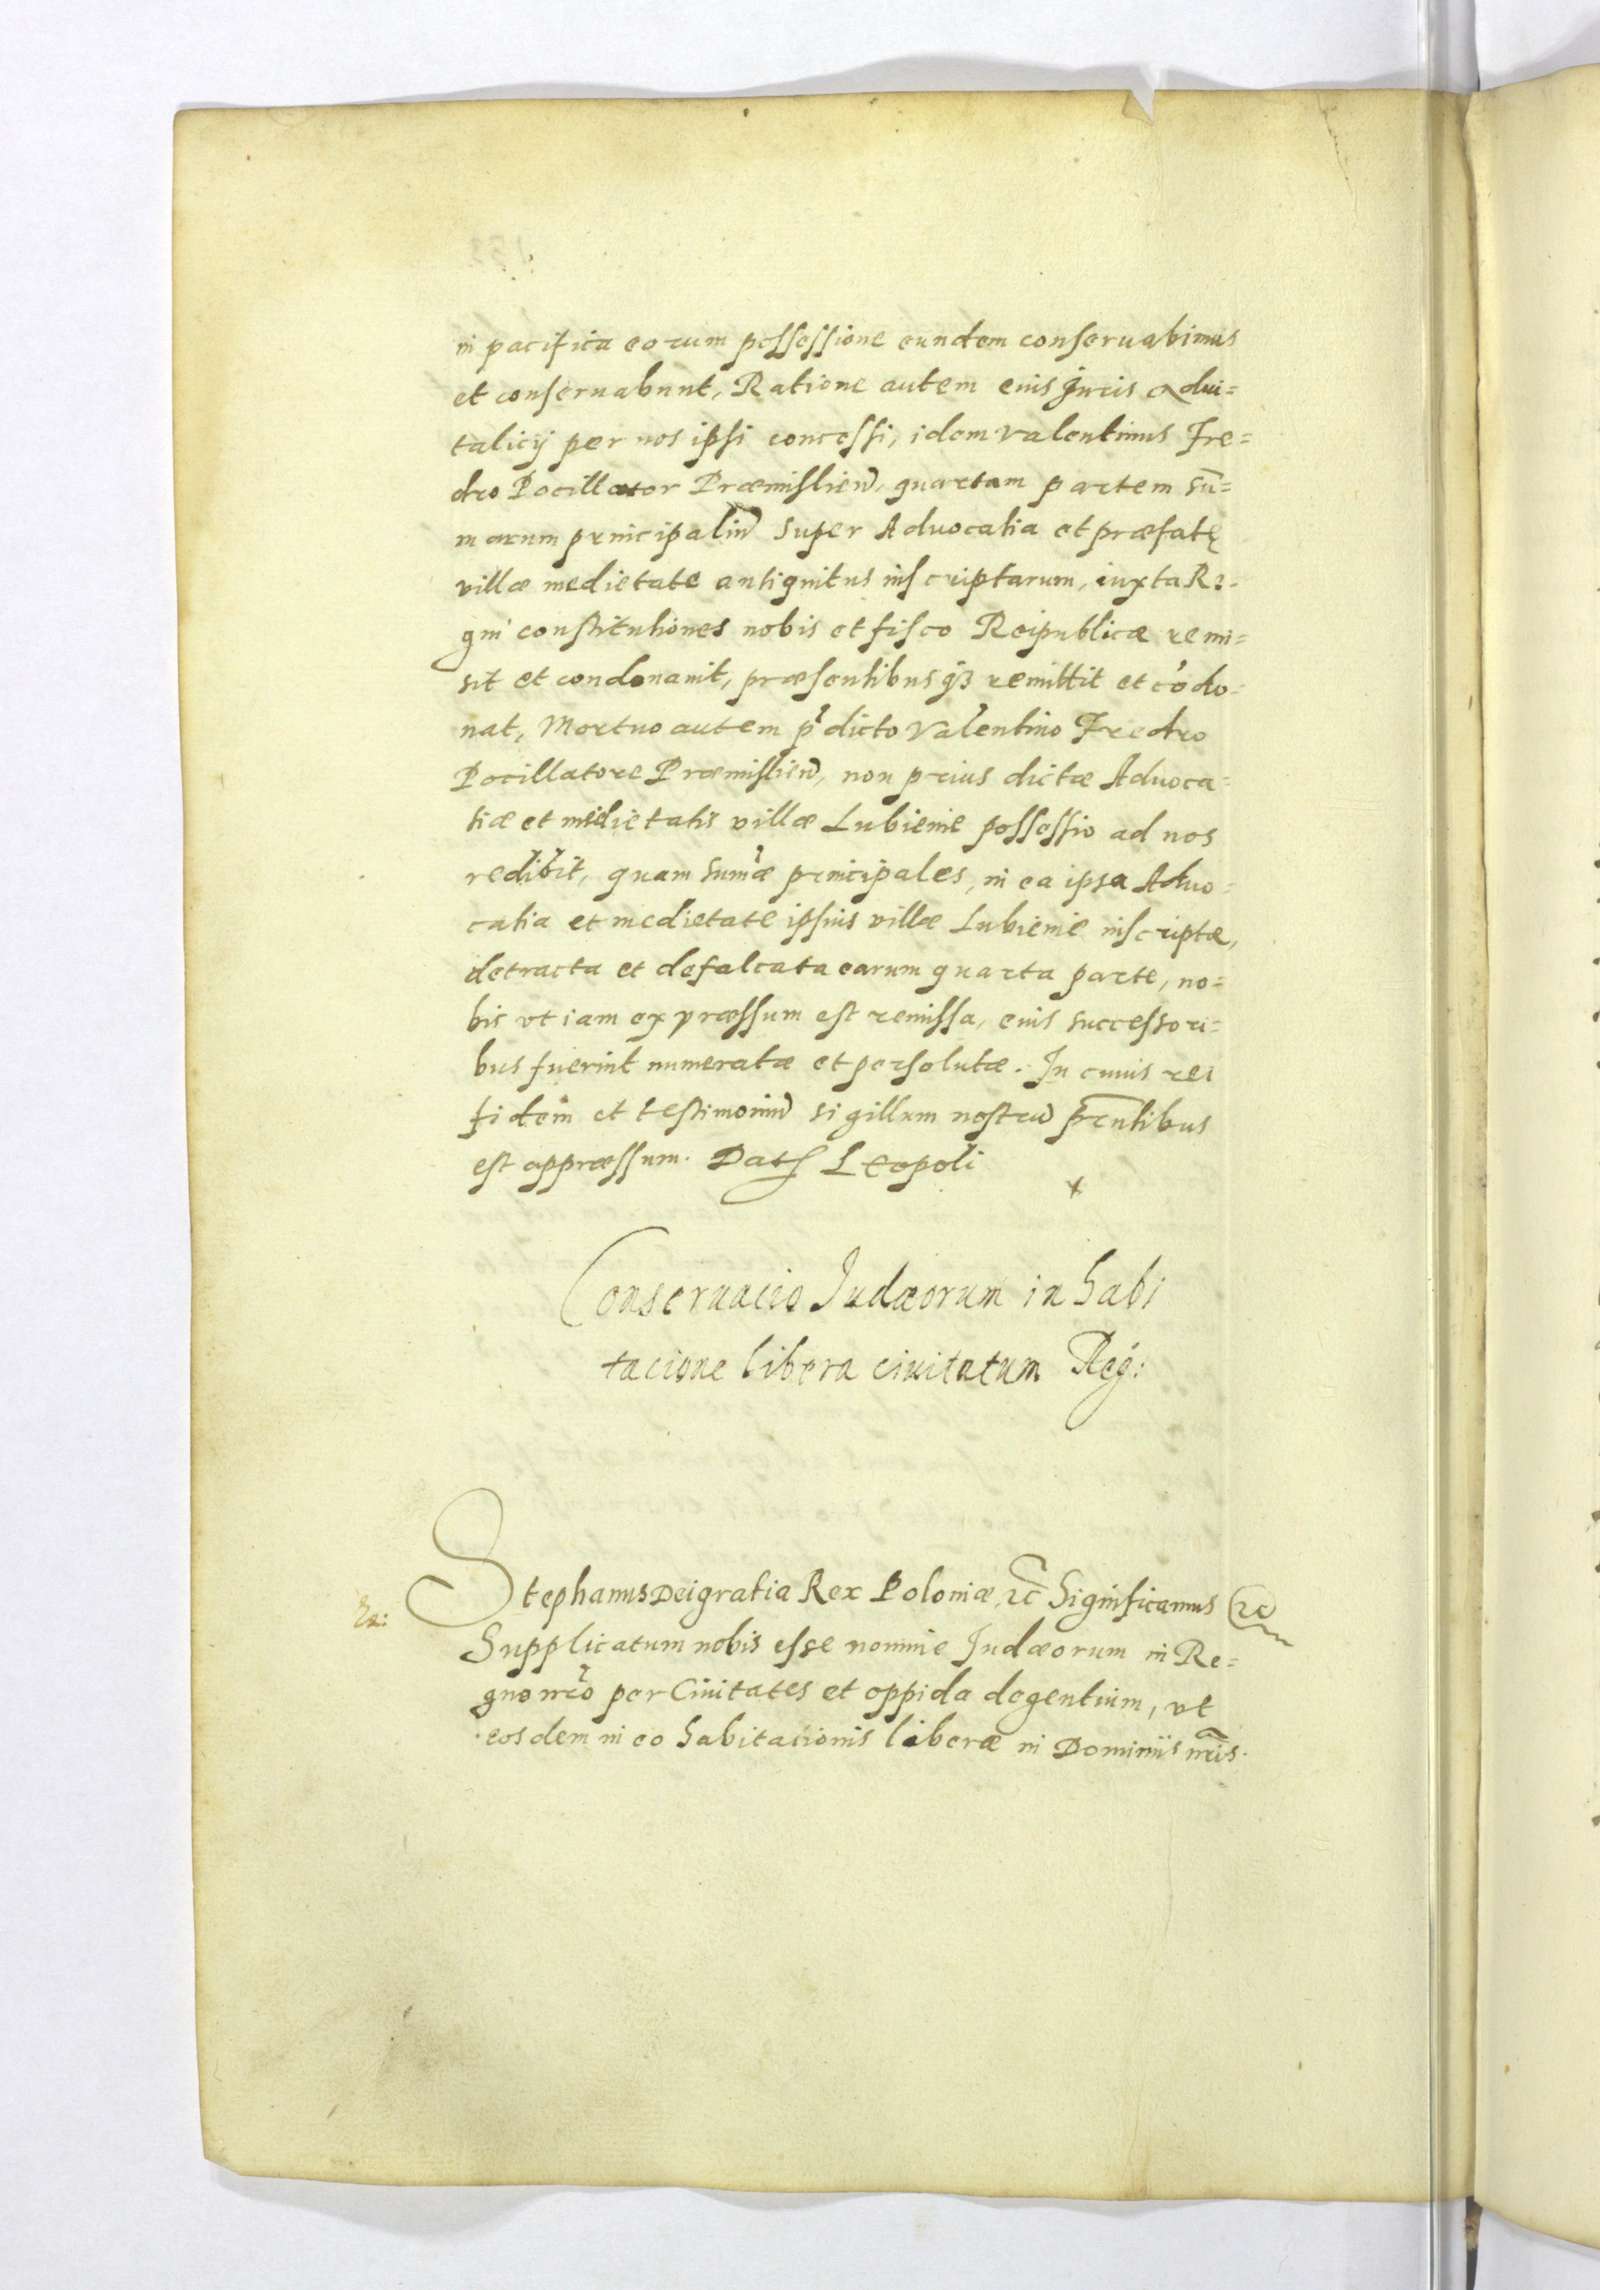 in pacifica eorum possessione eundem conseruabimus
et conseruabunt, Ratione autem eius Juris advi=
talicij per nos ipsi concessi, idem Valentinus Fre=
dro Pocillator Præmislieñ, quartam partem sū=
marum principaliũ super Aduocatia et præfatę
villæ medietate antiquitus inscriptarum, iuxta Re=
gni constitutiones nobis et fisco Reipublicæ remi=
sit et condonauit, præsentibusqȝ remittit et cõdo=
nat, Mortuo autem p̃dicto Valentino Fredro
Pocillatore Præmislieñ, non prius dictæ Aduoca=
tiæ et medietatis villæ Lubienie possessio ad nos
redibit, quam sum̃æ principales, in ea ipsa Aduo=
catia et medietate ipsius villæ Lubienie inscriptæ,
detracta et defalcata earum quarta parte, no=
bis vt iam expræssum est remissa, eius successori=
bus fuerint numeratæ et persolutæ. In cuius rei
fidem et testimoniũ sigillum nostrũ p̃ntibus
est appræssum. Dat Leopoli
Conseruacio Judæorum in habi
tacione libera ciuitatum Reg:
Stephanus Dei gratia Rex Poloniæ, ꝛc Significamus ꝛc
Supplicatum nobis esse nomine Judæorum in Re=
gno nr̃o per Ciuitates et oppida degentium, vt
eosdem in eo habitationis liberæ in Dominiis nr̃is